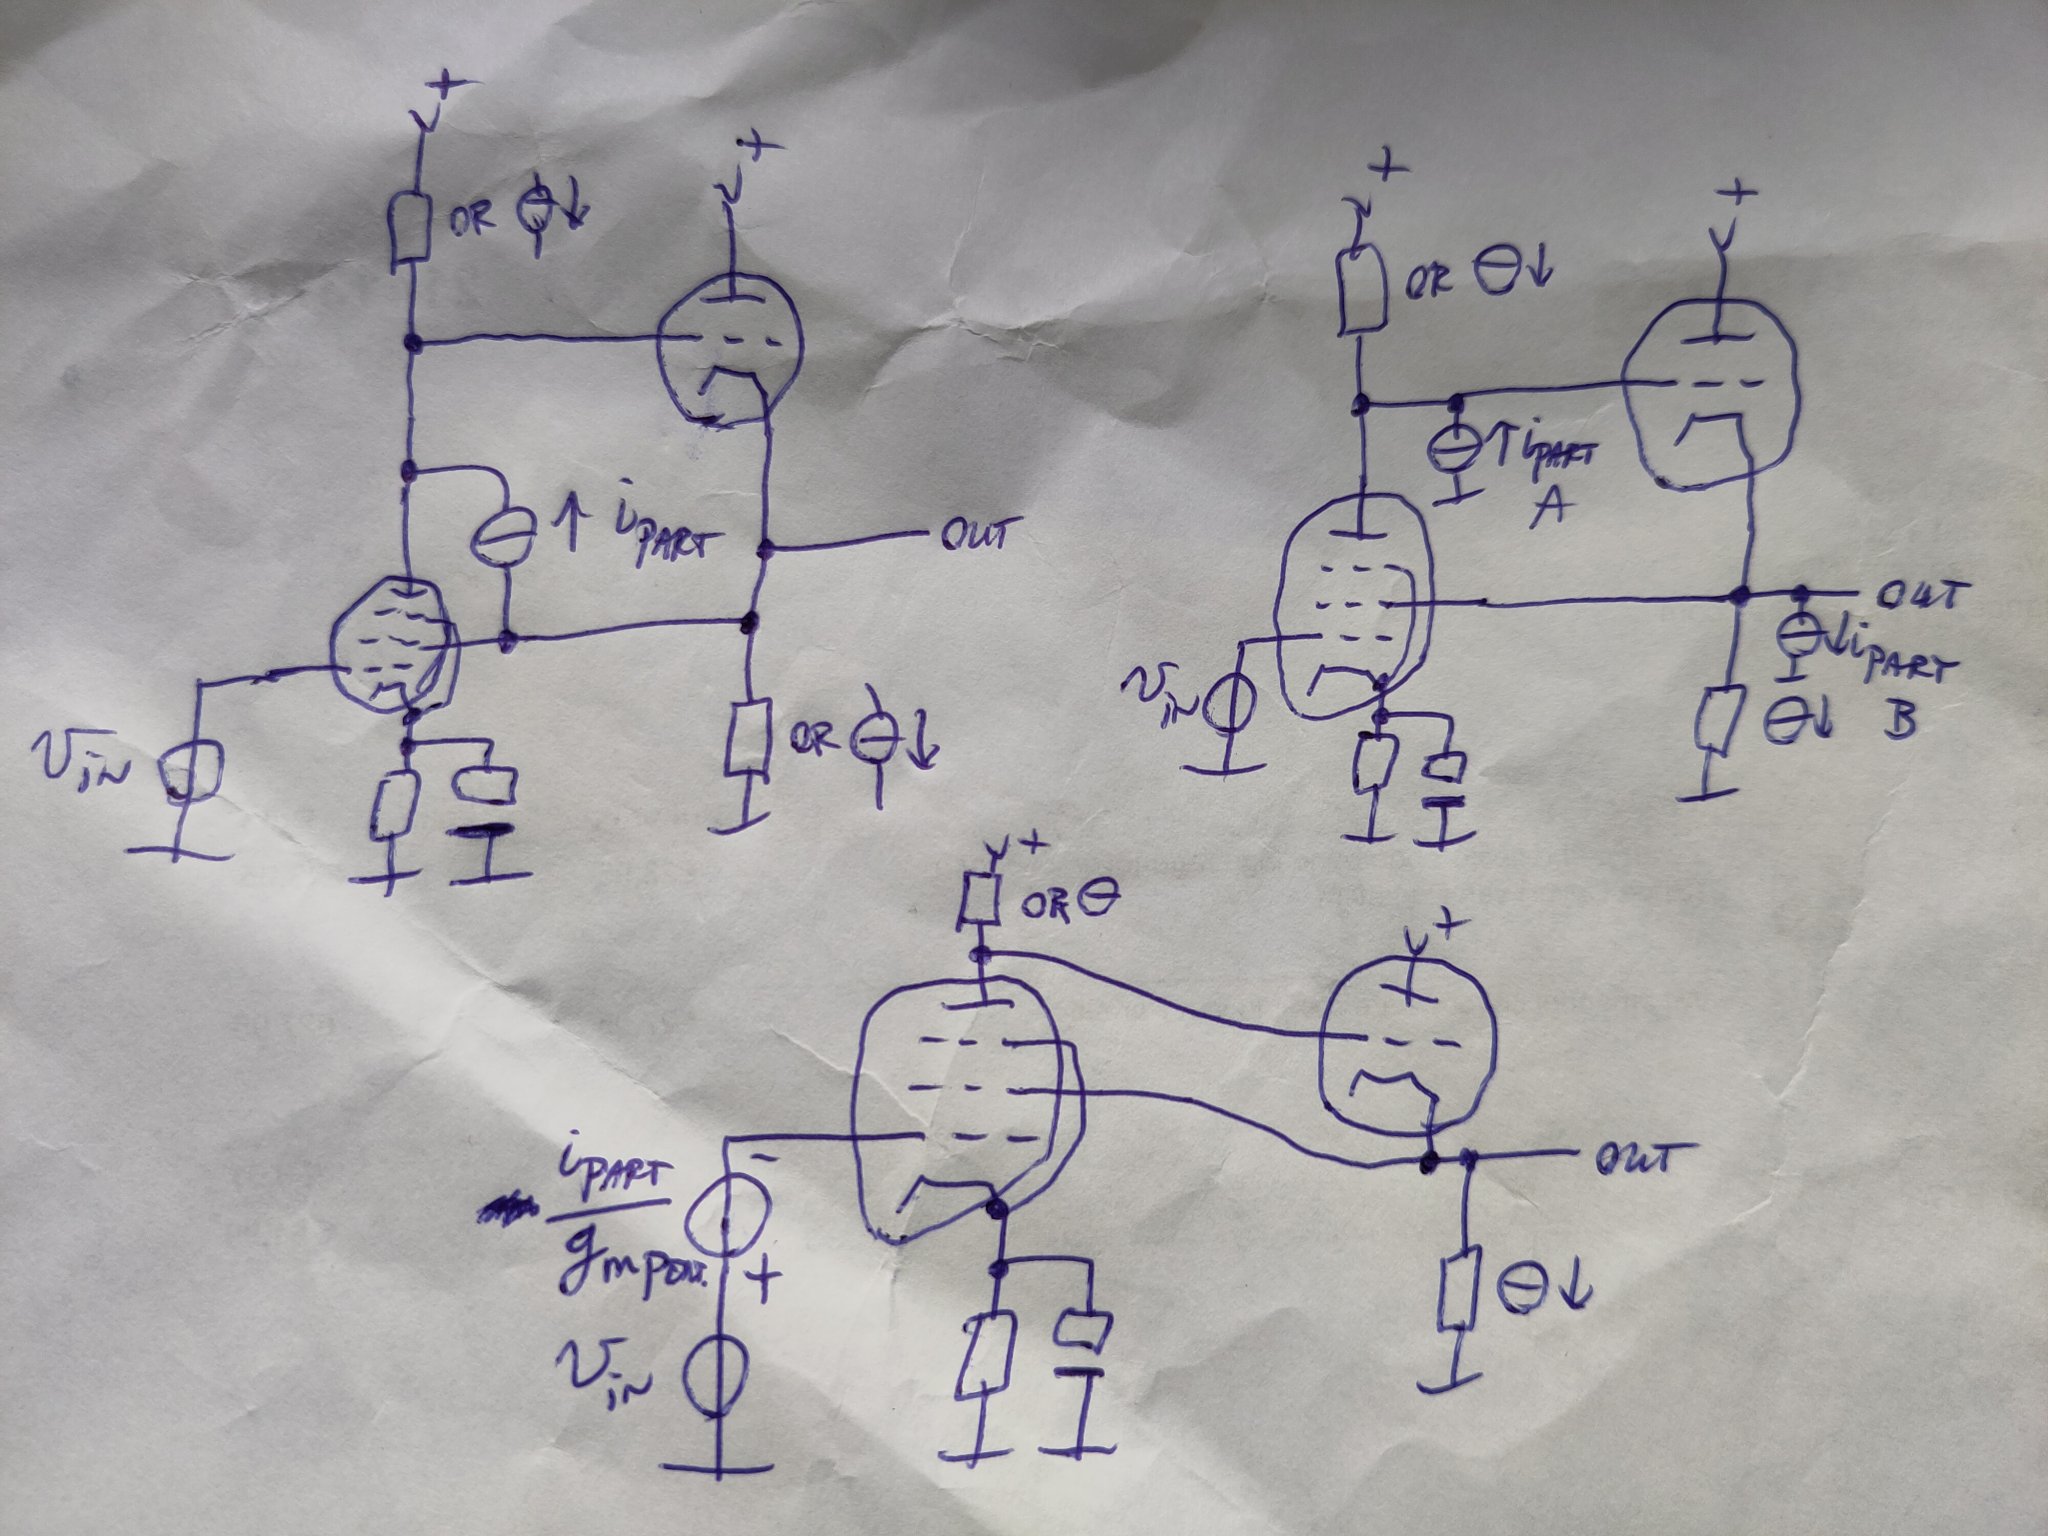 +
+
OR ↓
↑ iPART
OUT
vin
OR ↓
+
+
OR ↓
↑ iPART
A
OUT
↓ iPART
B
vin
↓
+
OR
+
OUT
iPART
gm pent.
-
+
vin
↓